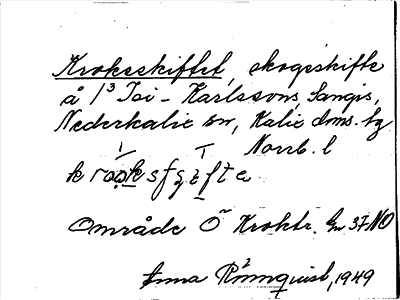 Kroksskiftet, skogsskifte
å 1³ Isi-Karlssons, Sangis,
Nederkalix sn, Kalix doms. tg
Norrb. l
krooksfsifte
Område Ö Kroktr. Gw 37 NO
Anna Rönnquist, 1949